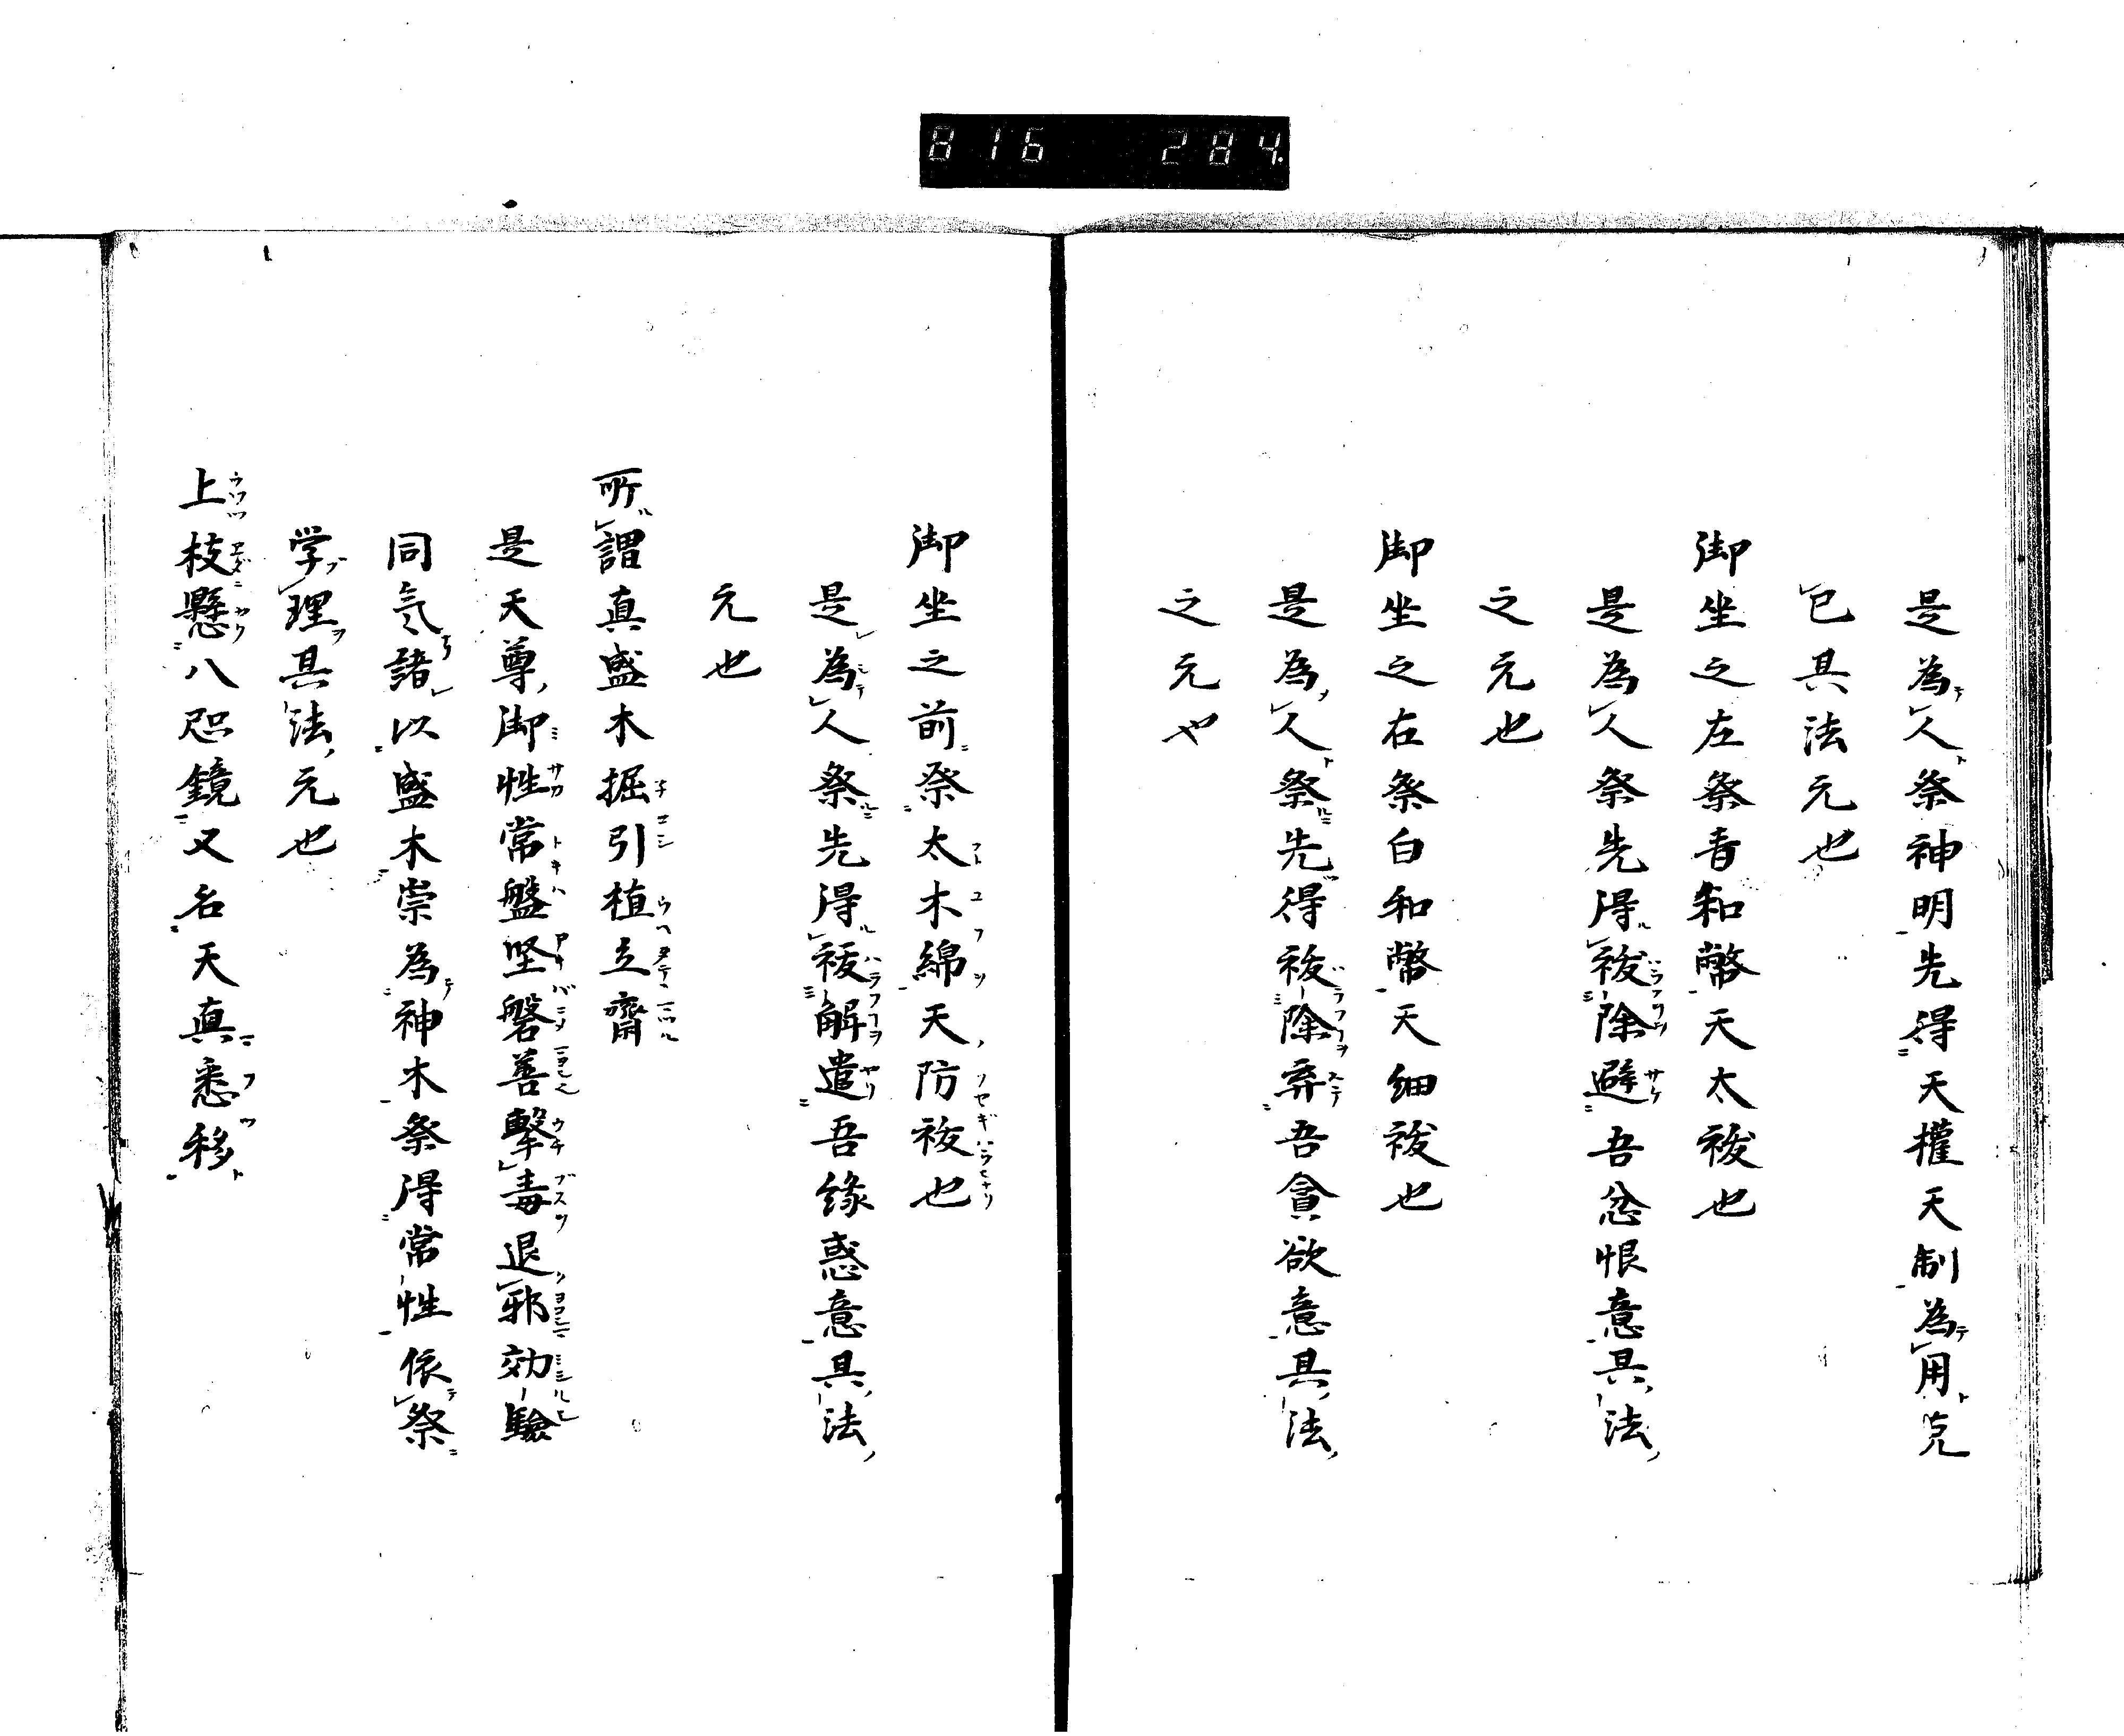 816 284.
是為人祭神明先得天權天制為用克
已其法元也
御坐之左祭青和幣天太祓也
是為人祭先得祓除避吾忿恨意具法
之元也
御坐之右祭白和幣天細祓也
是為人祭先得祓除弃吾貪欲意具法
之元也
御坐之前祭太木綿天防祓也
是為人祭先得祓解遣吾緣惑意具法
元也
所謂真盛木掘引植立齋
是天尊御性常盤堅磐善擊毒退邪効驗
同氣諸以盛木崇為神木祭得常性依祭
学理具法元也
上枝懸八咫鏡又名天真悉移